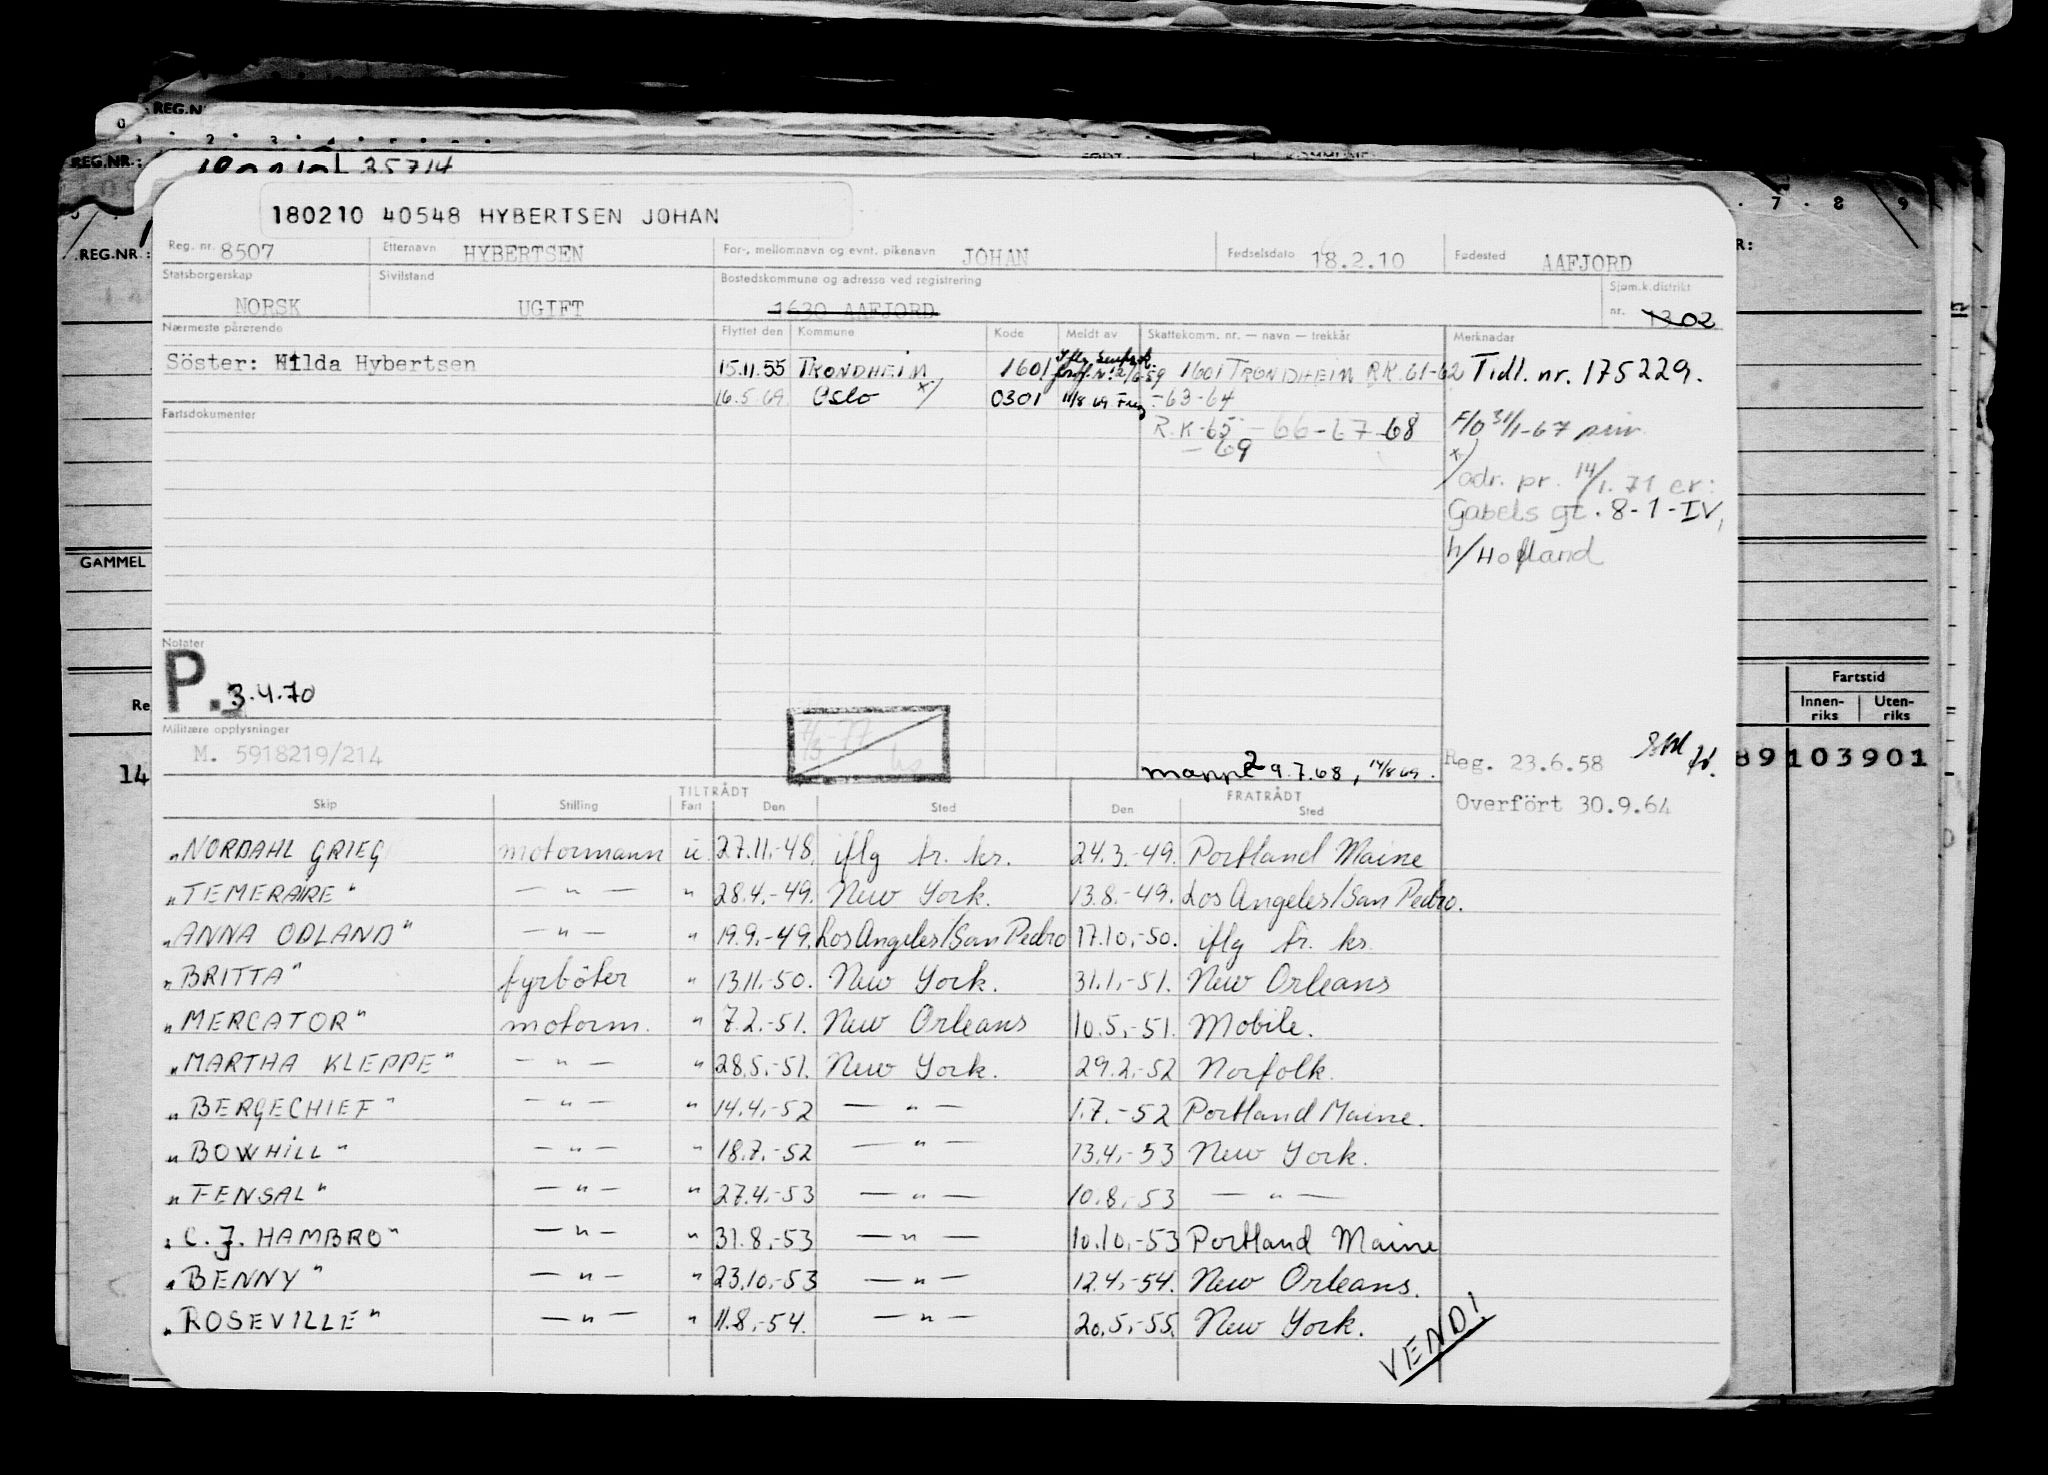 REG.N
0
1 . 2 . 3 . 4 .
REG.NR.: 35714
. 7 . 8 . 9
180210 40548 HYBERTSEN JOHAN
REG.NR.:
R:
Reg. nr. 8507 Etternavn HYBERTSEN For-, mellomnavn og evnt. pikenavn JOHAN Fødselsdato 18.2.10 Fødested AAFJORD
Statsborgerskap NORSK Sivilstand UGIFT Bostedskommune og adresse ved registrering 1630 AAFJORD Sjøm.k.distrikt nr. 1302
Nærmeste pårørende Flyttet den Kommune Kode Meldt av Skattekomm. nr. — navn — trekkår Merknadar
Söster: Hilda Hybertsen 15.11.55 TRONDHEIM 1601 1601 TRONDHEIM RK. 61-62 Tidl. nr. 175229.
16.5.69 Oslo x/ 0301 11/8 69 -63-64
Fartsdokumenter R.K-65-66-67-68 F/O 31/1-67
-69
x/ adr. pr. 14/1.71 er:
Gabels gt. 8-1-IV,
h/Hofland
GAMMEL
Notater
P. 3.4.70
Fartstid
Innen-riks Uten-riks
Re
Militære opplysninger
M. 5918219/214
mappe 2 9.7.68, 14/8 69.
Reg. 23.6.58
14
89103901
Overfört 30.9.64
TILTRÅDT FRATRÅDT
Skip Stilling Fart Den Sted Den Sted
"NORDAHL GRIEG motormann u. 27.11.-48. iflg tr. kr. 24.3.-49. Portland Maine
"TEMERAIRE" — " — " 28.4.-49. New York. 13.8.-49. Los Angeles/San Pedro.
"ANNA ODLAND" — " — " 19.9.-49. Los Angeles/San Pedro 17.10.-50. iflg tr. kr.
"BRITTA" fyrböter " 13.11.-50. New York. 31.1.-51. New Orleans
"MERCATOR" motorm. " 7.2.-51. New Orleans 10.5.-51. Mobile.
"MARTHA KLEPPE" — " — " 28.5.-51. New York. 29.2.-52 Norfolk.
"BERGECHIEF" — " — " 14.4.-52 — " — 1.7.-52 Portland Maine.
"BOWHILL" — " — " 18.7.-52 — " — 13.4.-53 New York.
"FENSAL" — " — " 27.4.-53 — " — 10.8.-53 — " —
"C. J. HAMBRO" — " — " 31.8.-53 — " — 10.10.-53 Portland Maine
"BENNY" — " — " 23.10.-53 — " — 12.4.-54. New Orleans.
"ROSEVILLE" — " — " 11.8.-54. — " — 20.5.-55. New York.
VEND!